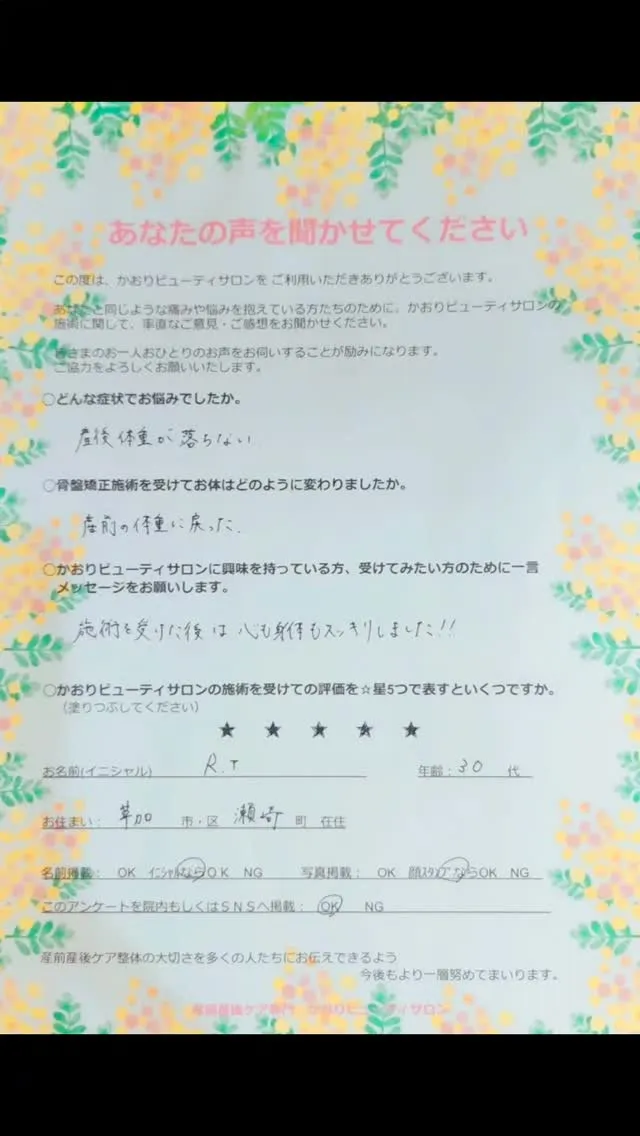 あなたの声を聞かせてください
この度は、かおりビューティサロンをご利用いただきありがとうございます。
あなたと同じような痛みや悩みを抱えている方たちのために、かおりビューティサロンの
施術に関して、率直なご意見・ご感想をお聞かせください。
皆さまのお一人おひとりのお声をお伺いすることが励みになります。
ご協力をよろしくお願いいたします。
○どんな症状でお悩みでしたか。
産後体重が落ちない
○骨盤矯正施術を受けてお体はどのように変わりましたか。
産前の体重に戻った。
○かおりビューティサロンに興味を持っている方、受けてみたい方のために一言
メッセージをお願いします。
施術を受けた後は心も身体もスッキリしました!!
○かおりビューティサロンの施術を受けての評価を☆星5つで表すといくつですか。
（塗りつぶしてください）
★ ★ ★ ★ ★
お名前(イニシャル) R.T 年齢：30 代
お住まい： 草加 市・区 瀬崎 町 在住
名前掲載： OK イニシャルならOK NG 写真掲載： OK 顔スタンプならOK NG
このアンケートを院内もしくはSNSへ掲載： OK NG
産前産後ケア整体の大切さを多くの人たちにお伝えできるよう
今後もより一層努めてまいります。
産前産後ケア専門 かおりビューティサロン